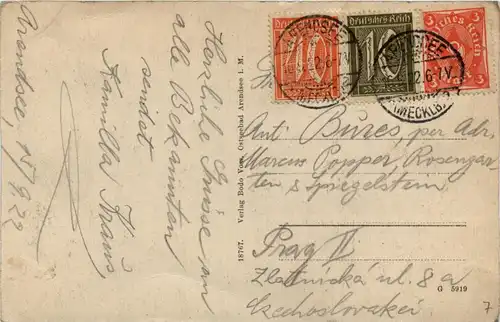 Arendsee, 15/9. 22
Herzliche Grüsse an
alle Bekannten
sendet
Kamilla Kraus,
18767. Verlag Bodo Voss, Ostseebad Arendsee i. M.
Deutsches Reich
10
ARENDSEE
(MECKLB.)
Toni Bures, per Adr.
Marcus Popper, Rosengar-
ten & Spiegelstern
Prag II
Zlatnická ul. 8 a
Czechoslovakei
G 5919
7